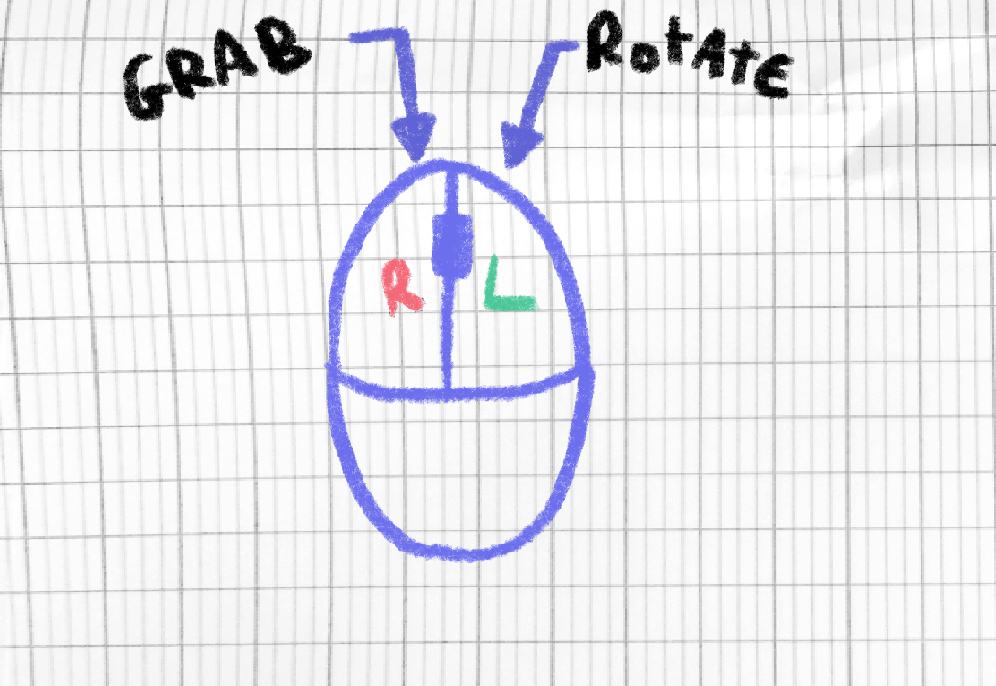 GRAB
RotAtE
R
L